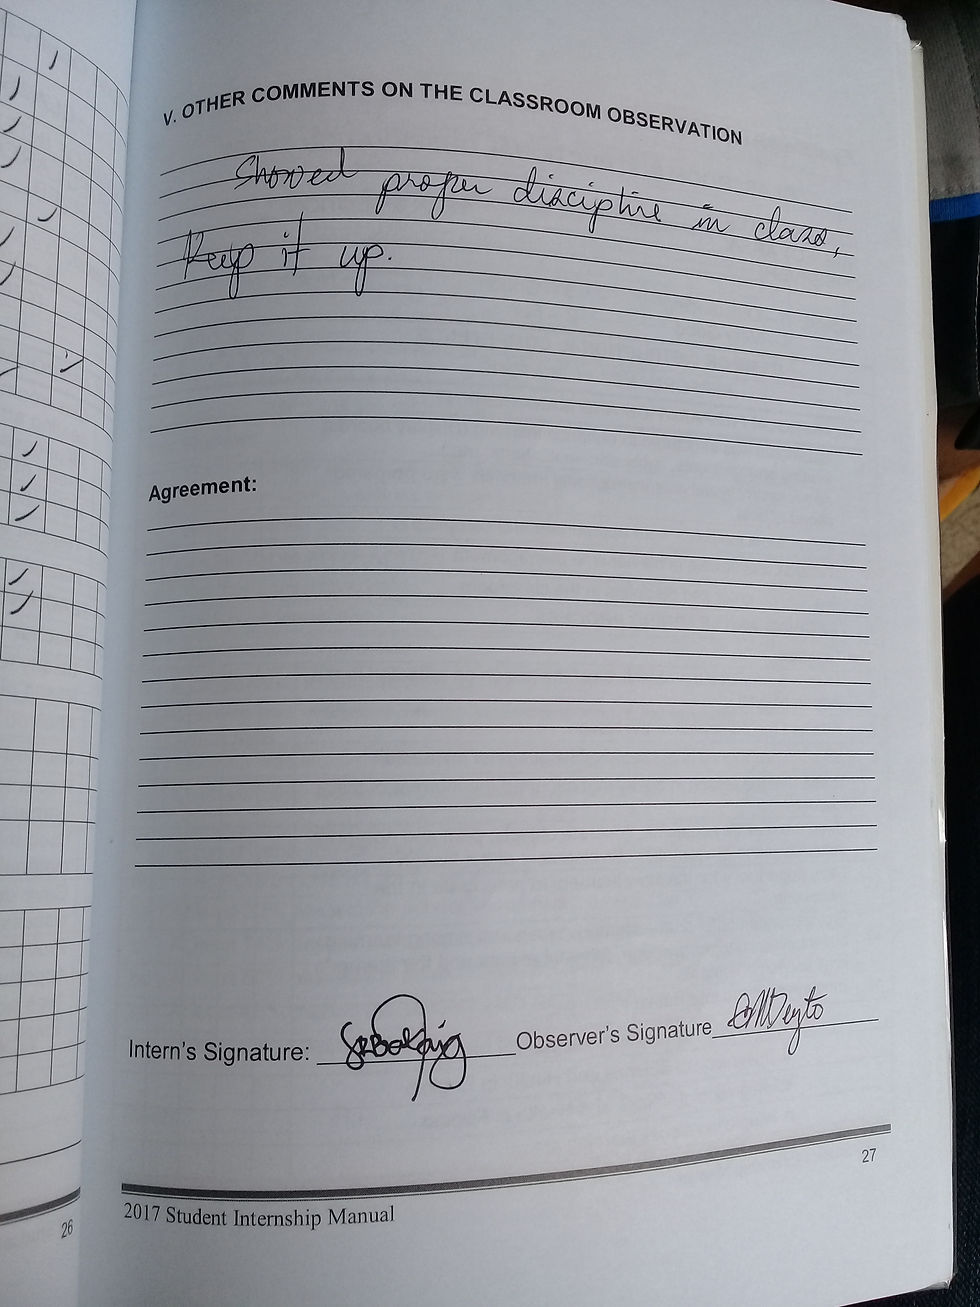 V. OTHER COMMENTS ON THE CLASSROOM OBSERVATION
Showed proper discipline in class,
Keep it up.
Agreement:
Intern's Signature:
Observer's Signature
27
2017 Student Internship Manual
26